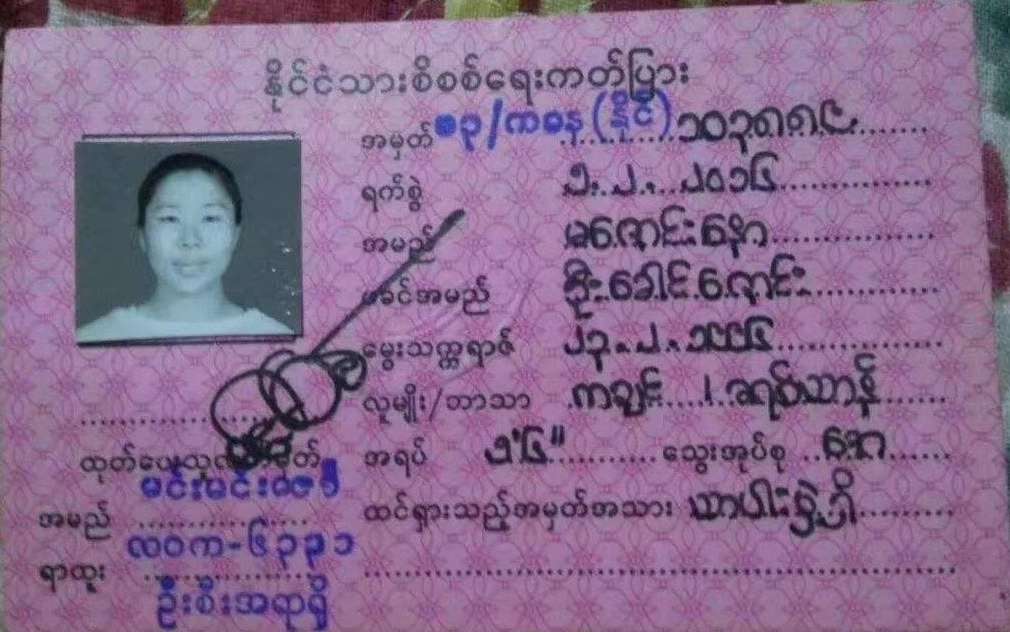 နိုင်ငံသားစိစစ်ရေးကတ်ပြား
အမှတ် ၁၃/ကခန(နိုင်) ၁၀၃၈၈၉
ရက်စွဲ ၅.၂.၂၀၁၆
အမည် မဇောင်းနော
ဖခင်အမည် ဦးခေါင်ဇောင်း
မွေးသက္ကရာဇ် ၂၃.၂.၁၉၉၆
လူမျိုး/ဘာသာ ကချင် / ခရစ်ယာန်
အရပ် ၅'၆" သွေးအုပ်စု အော
ထင်ရှားသည့်အမှတ်အသား ယာပါးမှဲ့ရှိ
ထုတ်ပေးသူလက်မှတ်
မင်းမင်းဇော်
အမည်
လဝက-၆၃၃၁
ရာထူး
ဦးစီးအရာရှိ